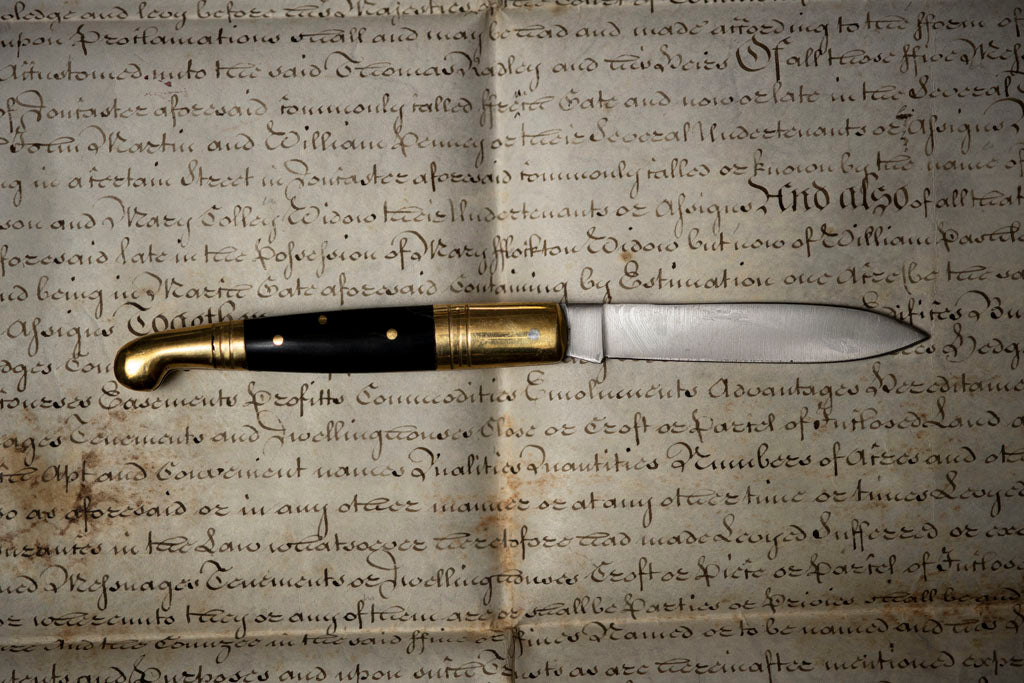 and levy before his Majesties
upon Proclamations shall and may be had and made according to the fform of
Accustomed unto the said Thomas Radley and his Heirs Of all those ffive
of Doncaster aforesaid commonly called ffrench Gate and now or late in the several
John Martin and William Penney or their several Undertenants or Assigns
in a certain Street in Doncaster aforesaid commonly called or known by the name of
son and Mary Colley Widow their Undertenants or Assigns And also of all that
foresaid late in the Possession of Mary Widow but now of William
nd being in Gate aforesaid Containing by Estimation one Acre (be the
Assigns Together Edifices
dges
Easements Profitts Commodities Emoluments Advantages Hereditame
ages Tenements and Dwellinghouses Close or Croft or Parcel of Inclosed Land
Apt and Convenient names Qualities Quantities Numbers of Acres and
so as aforesaid or in any other manner or at any other time or times Levyed
in the Law whatsoever heretofore had made Levyed Sufferred or
Messuages Tenements or Dwellinghouses Croft or Piece or Parcel of
or whereunto they or any of them are or shall be Parties or Privies shall be and
And the in the said ffine or ffines Named or to be named and
Purposes and upon such Trusts as are hereinafter mentioned